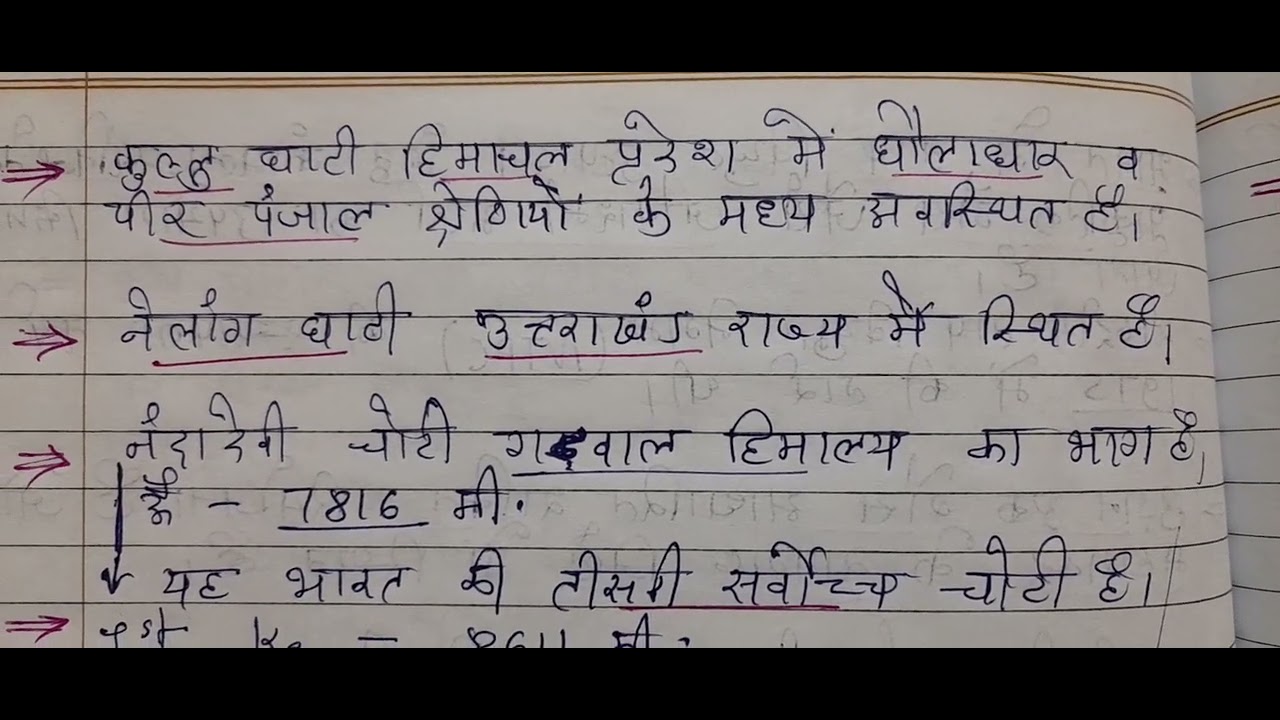 ⇒ कुल्लु घाटी हिमाचल प्रदेश में धौलाधार व
पीर पंजाल श्रेणियों के मध्य अवस्थित है।
⇒ नेलांग घाटी उत्तराखंड राज्य में स्थित है।
⇒ नंदादेवी चोटी गढ़वाल हिमालय का भाग है,
ऊँ - 7816 मी.
यह भारत की तीसरी सर्वोच्च चोटी है।
⇒ 1st K2 - 8611 मी.